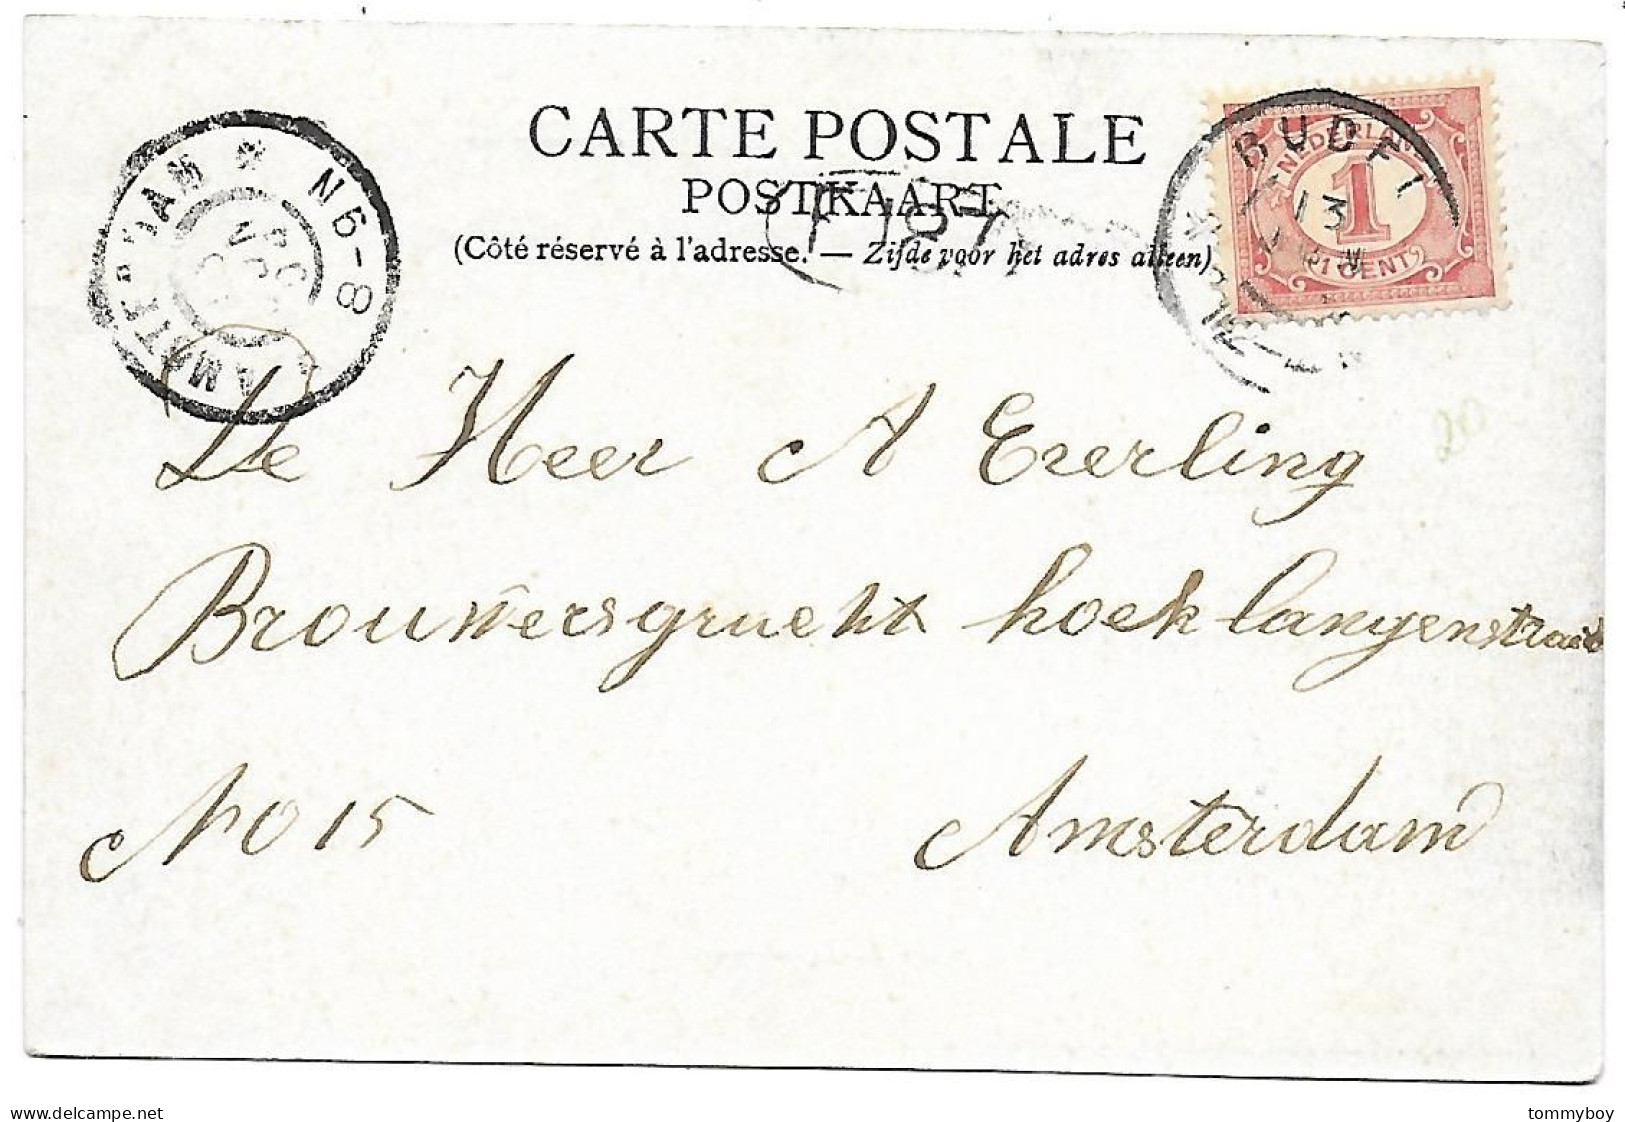 CARTE POSTALE
POSTKAART
(Côté réservé à l'adresse. — Zijde voor het adres alleen)
AMSTERDAM * N 6-8
NEDERLAND
1
1 CENT
BUDEL
13
F 107
20
De Heer A Everling
Brouwersgracht hoek langenstraat
No 15 Amsterdam
delcampe.net
tommyboy